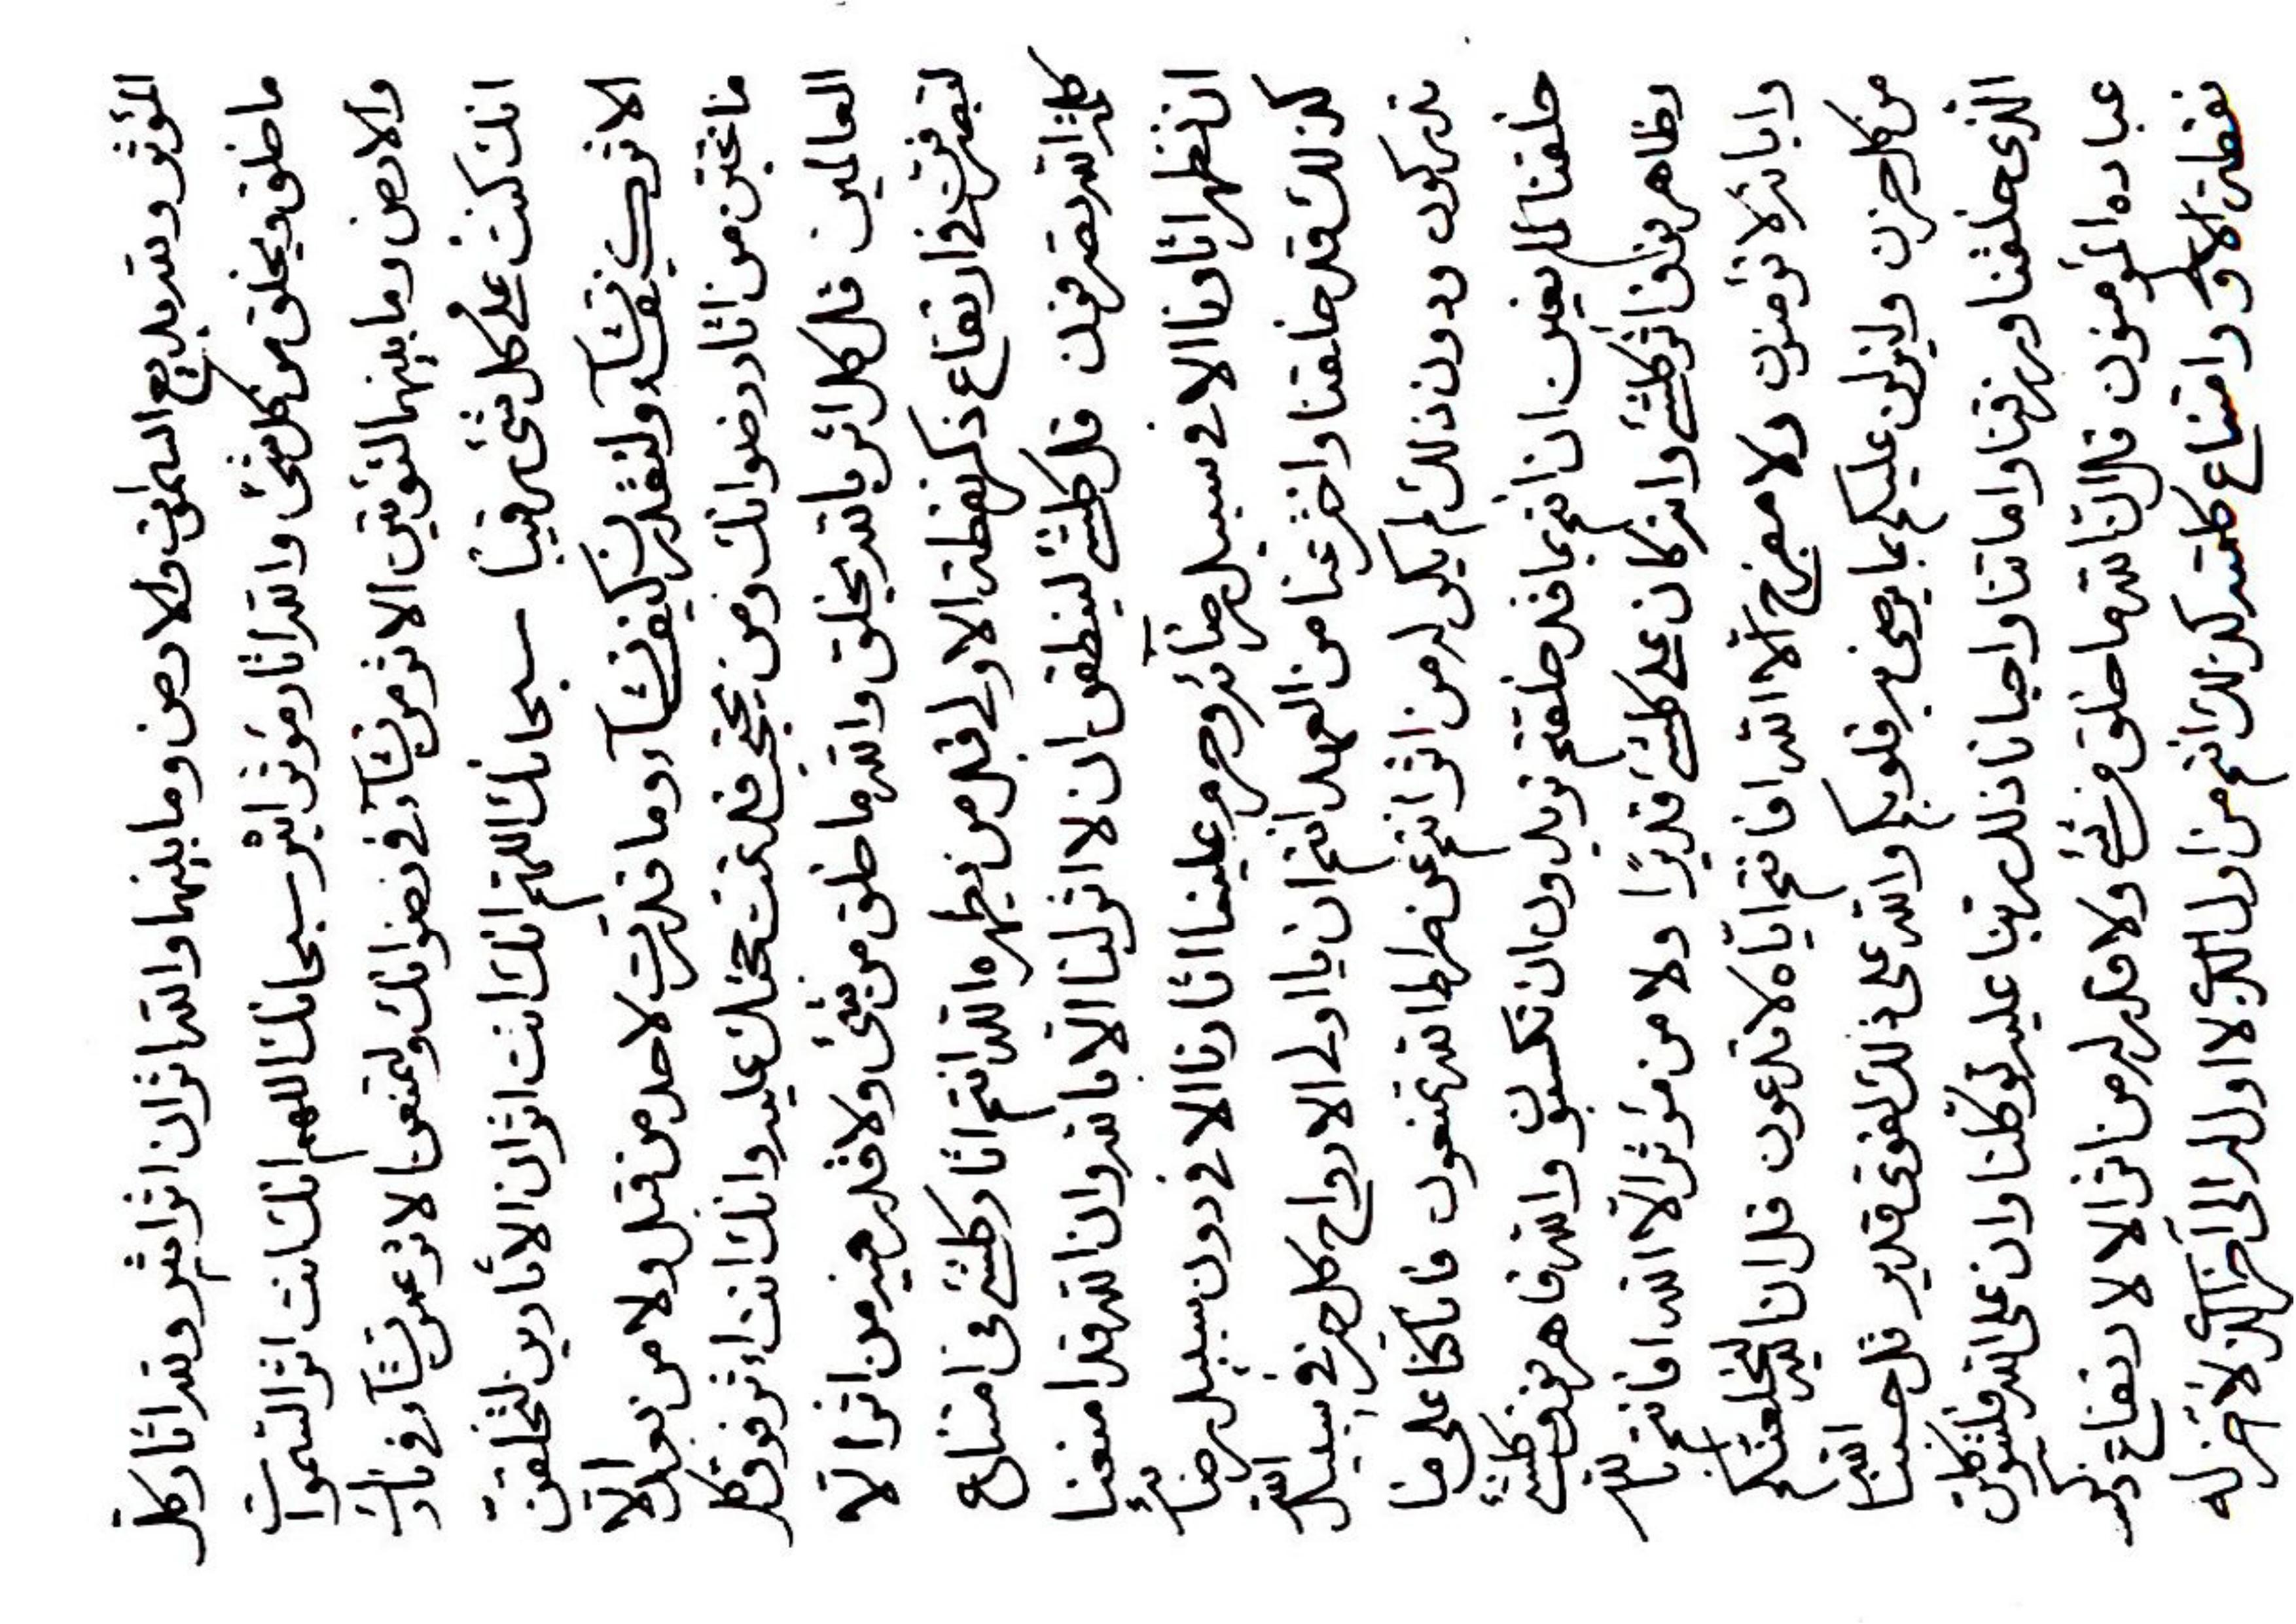 المؤثر ولله بديع السموات والارض وما بينهما والله اثران اثر اثير ولله اثار كل
ما خلق ويخلق من كل شئ والله اثار مؤثر اثير سبحانك اللهم انك انت اثر السموات
والارض وما بينهما لتؤتين الاثر من تشآء في رضوانك ولتمنعن الاثر عمن تشآء في نارك
انك كنت على كل شئ رقيبا سبحانك اللهم انك انت اثران الأثارين لتخلقن
الاثر كيف تشآء ولتقدرن كيف تشآء وما قدرت لاحد من قبل ولا من بعد الا
ما تحبن من اثار رضوانك ومن يحتجب قد تمت حجتك عليه وانك انت اثر فوق كل
العالمين قل كل اثر بالله يخلق والله ما خلق من شئ ولا قدر فيه من اثر الا
في ارتفاع ذكر نقطة الاولى قبل من يظهره الله انتم اثار كلشئ في امتناع
كلمة الله تصرفون قل كلشئ لينطقن ان لا اثر لنا الا بالله وان الله قد امنعنا
ان نظهر اثارنا الا في سبيل رضآئه وحرم علينا اثارنا الا في دون سبيل رضآئه
كذلك قد خلقنا واخذ عنا من العهد انتم ان يا اولى الارواح كل حزن في سبيل الله
تدركون ودون ذلك لم يكن له من اثر انتم عن صراط الله تمنعون فاتكلنا على من
خلقنا لم يغن ان انتم بما قد خلقتم تريدون ان تكسبون والله قاهر فوق كلشئ
وظاهر فوق كلشئ وانه كان على كلشئ قديرا ولا من مؤثر الا الله افانتم بالله
وايآئه لا تؤمنون ولا مفرج الا الله افانتم اياه لا تدعون قل ان الله ليخلصنكم
من كل حزن ولينزلن عليكم بما يرضى به قلوبكم والله على ذلك لقوى قدير قل حسبنا الله
الذى خلقنا ورزقنا واماتنا واحيانا ذلك ربنا عليه توكلنا وان على الله فليتوكلن
عباده المؤمنون قل ان الله ما خلق من شئ ولا قدر له من اثر الا لارتفاع ذكر
نقطة الاولى وامتناع كلمته كذلك انتم من اول الذى لا اول له الى اخر الذى لا اخر له